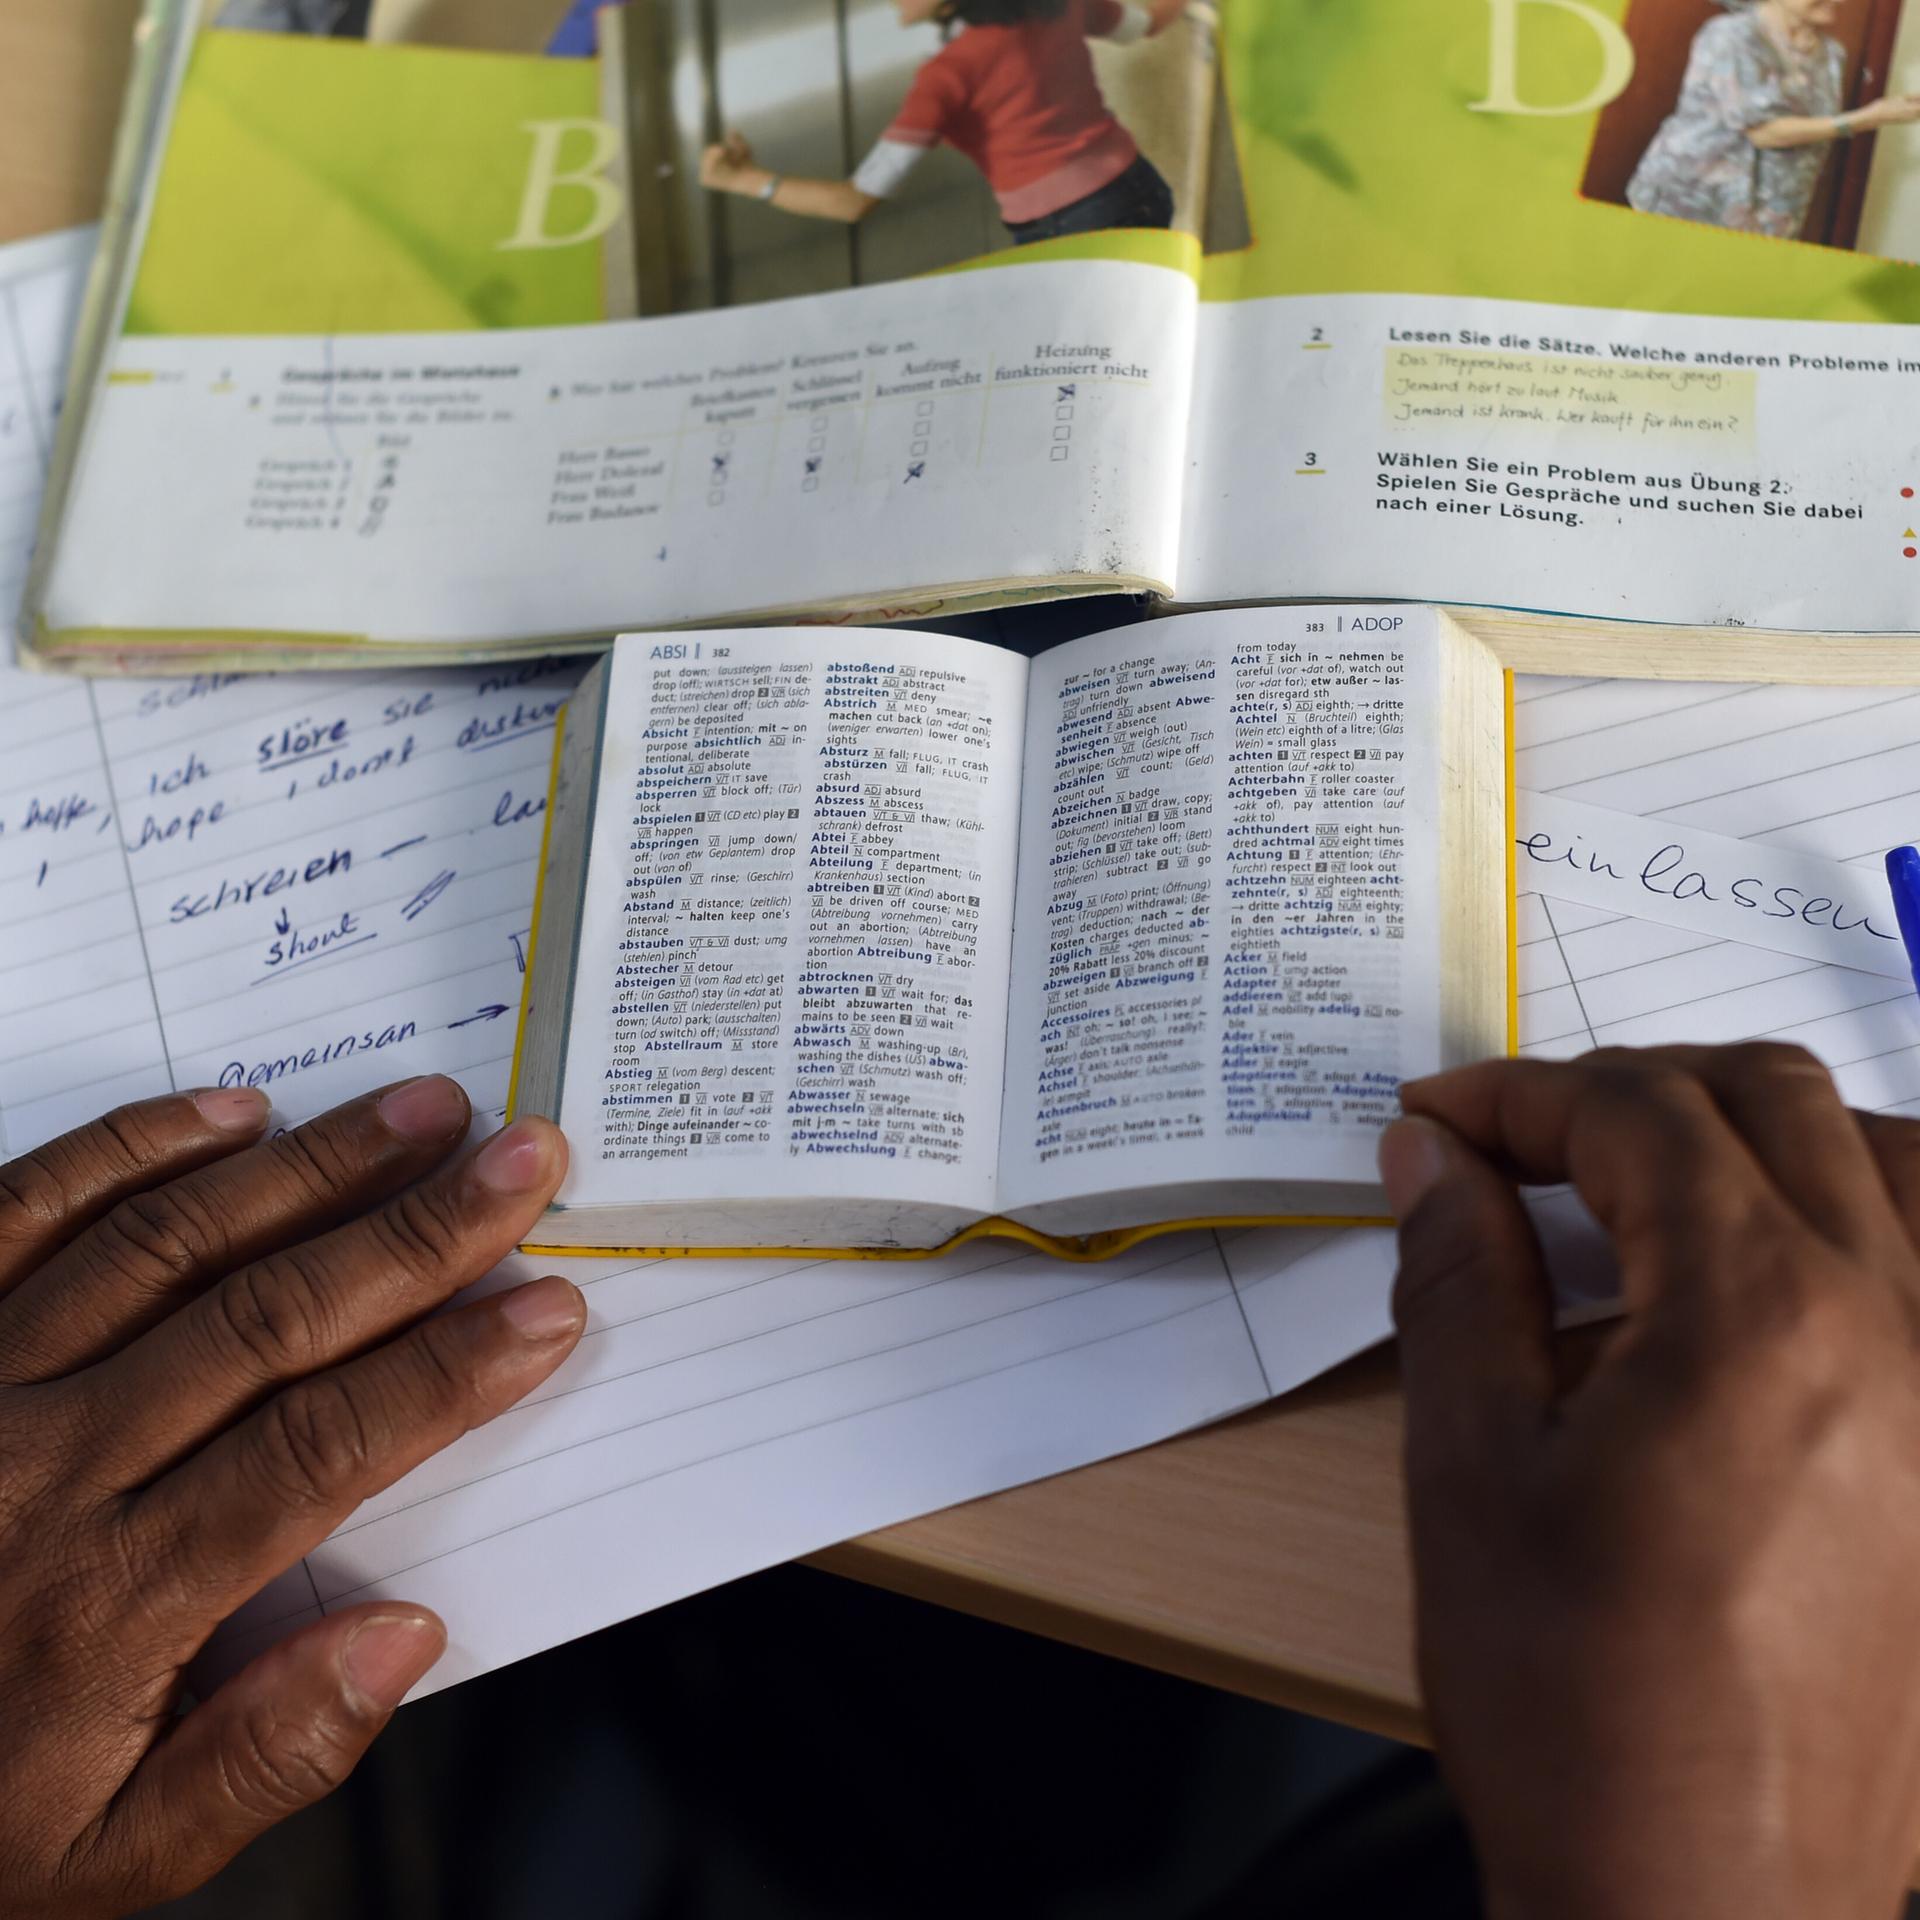 B
D
1 Gespräche im Mietshaus
Heizung
Aufzug
funktioniert nicht
kommt nicht
Schlüssel
vergessen
Briefkasten
kaputt
Gespräch 1
Gespräch 2
Gespräch 3
Gespräch 4
Herr Basso
Herr Dolezal
Frau Weiß
Frau Budanow
2 Lesen Sie die Sätze. Welche anderen Probleme im
Das Treppenhaus ist nicht sauber genug.
Jemand hört zu laut Musik
Jemand ist krank. Wer kauft für ihn ein?
...
3 Wählen Sie ein Problem aus Übung 2.
Spielen Sie Gespräche und suchen Sie dabei
nach einer Lösung.
Ich störe sie
hope I don't
schreien —
shout
Gemeinsan →
einlassen
ABSI 382
put down; (aussteigen lassen)
drop (off); WIRTSCH sell; FIN de-
duct; (streichen) drop 2 V/R (sich
entfernen) clear off; (sich abla-
gern) be deposited
Absicht F intention; mit ~ on
purpose absichtlich ADJ in-
tentional, deliberate
absolut ADJ absolute
abspeichern V/T IT save
absperren V/T block off; (Tür)
lock
abspielen 1 V/T (CD etc) play 2
V/R happen
abspringen V/I jump down/
off; (von etw Geplantem) drop
out (von of)
abspülen V/T rinse; (Geschirr)
wash
Abstand M distance; (zeitlich)
interval; ~ halten keep one's
distance
abstauben V/T & V/I dust; umg
(stehlen) pinch
Abstecher M detour
absteigen V/I (vom Rad etc) get
off; (in Gasthof) stay (in +dat at)
abstellen V/T (niederstellen) put
down; (Auto) park; (ausschalten)
turn (od switch) off; (Missstand)
stop Abstellraum M store
room
Abstieg M (vom Berg) descent;
SPORT relegation
abstimmen 1 V/I vote 2 V/T
(Termine, Ziele) fit in (auf +akk
with); Dinge aufeinander ~ co-
ordinate things 3 V/R come to
an arrangement
abstoßend ADJ repulsive
abstrakt ADJ abstract
abstreiten V/T deny
Abstrich M MED smear; ~e
machen cut back (an +dat on);
(weniger erwarten) lower one's
sights
Absturz M fall; FLUG, IT crash
abstürzen V/I fall; FLUG, IT
crash
absurd ADJ absurd
Abszess M abscess
abtauen V/T & V/I thaw; (Kühl-
schrank) defrost
Abtei F abbey
Abteil N compartment
Abteilung F department; (in
Krankenhaus) section
abtreiben 1 V/T (Kind) abort 2
V/I be driven off course; MED
(Abtreibung vornehmen) carry
out an abortion; (Abtreibung
vornehmen lassen) have an
abortion Abtreibung F abor-
tion
abtrocknen V/T dry
abwarten 1 V/T wait for; das
bleibt abzuwarten that re-
mains to be seen 2 V/I wait
abwärts ADV down
Abwasch M washing-up (Br),
washing the dishes (US) abwa-
schen V/T (Schmutz) wash off;
(Geschirr) wash
Abwasser N sewage
abwechseln V/R alternate; sich
mit j-m ~ take turns with sb
abwechselnd ADV alternate-
ly Abwechslung F change;
383 ADOP
zur ~ for a change
abweisen V/T turn away; (An-
trag) turn down abweisend
ADJ unfriendly
abwesend ADJ absent Abwe-
senheit F absence
abwiegen V/T weigh (out)
abwischen V/T (Gesicht, Tisch
etc) wipe; (Schmutz) wipe off
abzählen V/T count; (Geld)
count out
Abzeichen N badge
abzeichnen 1 V/T draw, copy;
(Dokument) initial 2 V/R stand
out; fig (bevorstehen) loom
abziehen 1 V/T take off; (Bett)
strip; (Schlüssel) take out; (sub-
trahieren) subtract 2 V/I go
away
Abzug M (Foto) print; (Öffnung)
vent; (Truppen) withdrawal; (Be-
trag) deduction; nach ~ der
Kosten charges deducted ab-
züglich PRÄP +gen minus; ~
20% Rabatt less 20% discount
abzweigen 1 V/I branch off 2
V/T set aside Abzweigung F
junction
Accessoires PL accessories pl
ach INT oh; ~ so! oh, I see; ~
was! (Überraschung) really?;
(Ärger) don't talk nonsense
Achse F axis; AUTO axle
Achsel F shoulder; (Achselhöh-
le) armpit
Achsenbruch M AUTO broken
axle
acht NUM eight; heute in ~ Ta-
gen in a week's time, a week
from today
Acht F sich in ~ nehmen be
careful (vor +dat of), watch out
(vor +dat for); etw außer ~ las-
sen disregard sth
achte(r, s) ADJ eighth; → dritte
Achtel N (Bruchteil) eighth;
(Wein etc) eighth of a litre; (Glas
Wein) ≈ small glass
achten 1 V/T respect 2 V/I pay
attention (auf +akk to)
Achterbahn F roller coaster
achtgeben V/I take care (auf
+akk of), pay attention (auf
+akk to)
achthundert NUM eight hun-
dred achtmal ADV eight times
Achtung 1 F attention; (Ehr-
furcht) respect 2 INT look out
achtzehn NUM eighteen acht-
zehnte(r, s) ADJ eighteenth;
→ dritte achtzig NUM eighty;
in den ~er Jahren in the
eighties achtzigste(r, s) ADJ
eightieth
Acker M field
Action F umg action
Adapter M adapter
addieren V/T add (up)
Adel M nobility adelig ADJ no-
ble
Ader F vein
Adjektiv N adjective
Adler M eagle
adoptieren V/T adopt Adop-
tion F adoption Adoptivel-
tern PL adoptive parents
Adoptivkind N adopted
child